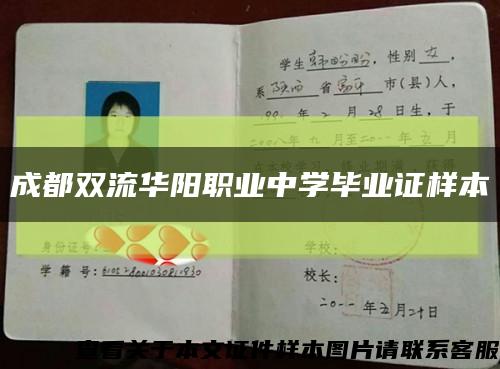 学生韩盼盼,性别女,
系陕西省富平市(县)人,
1991年2月28日生,于
二00八年九月至二0一一年五月
成都双流华阳职业中学毕业证样本
身份证号:
学籍号:
学校:
校长:
二0一一年五月二十日
查看关于本文证件样本图片请联系客服